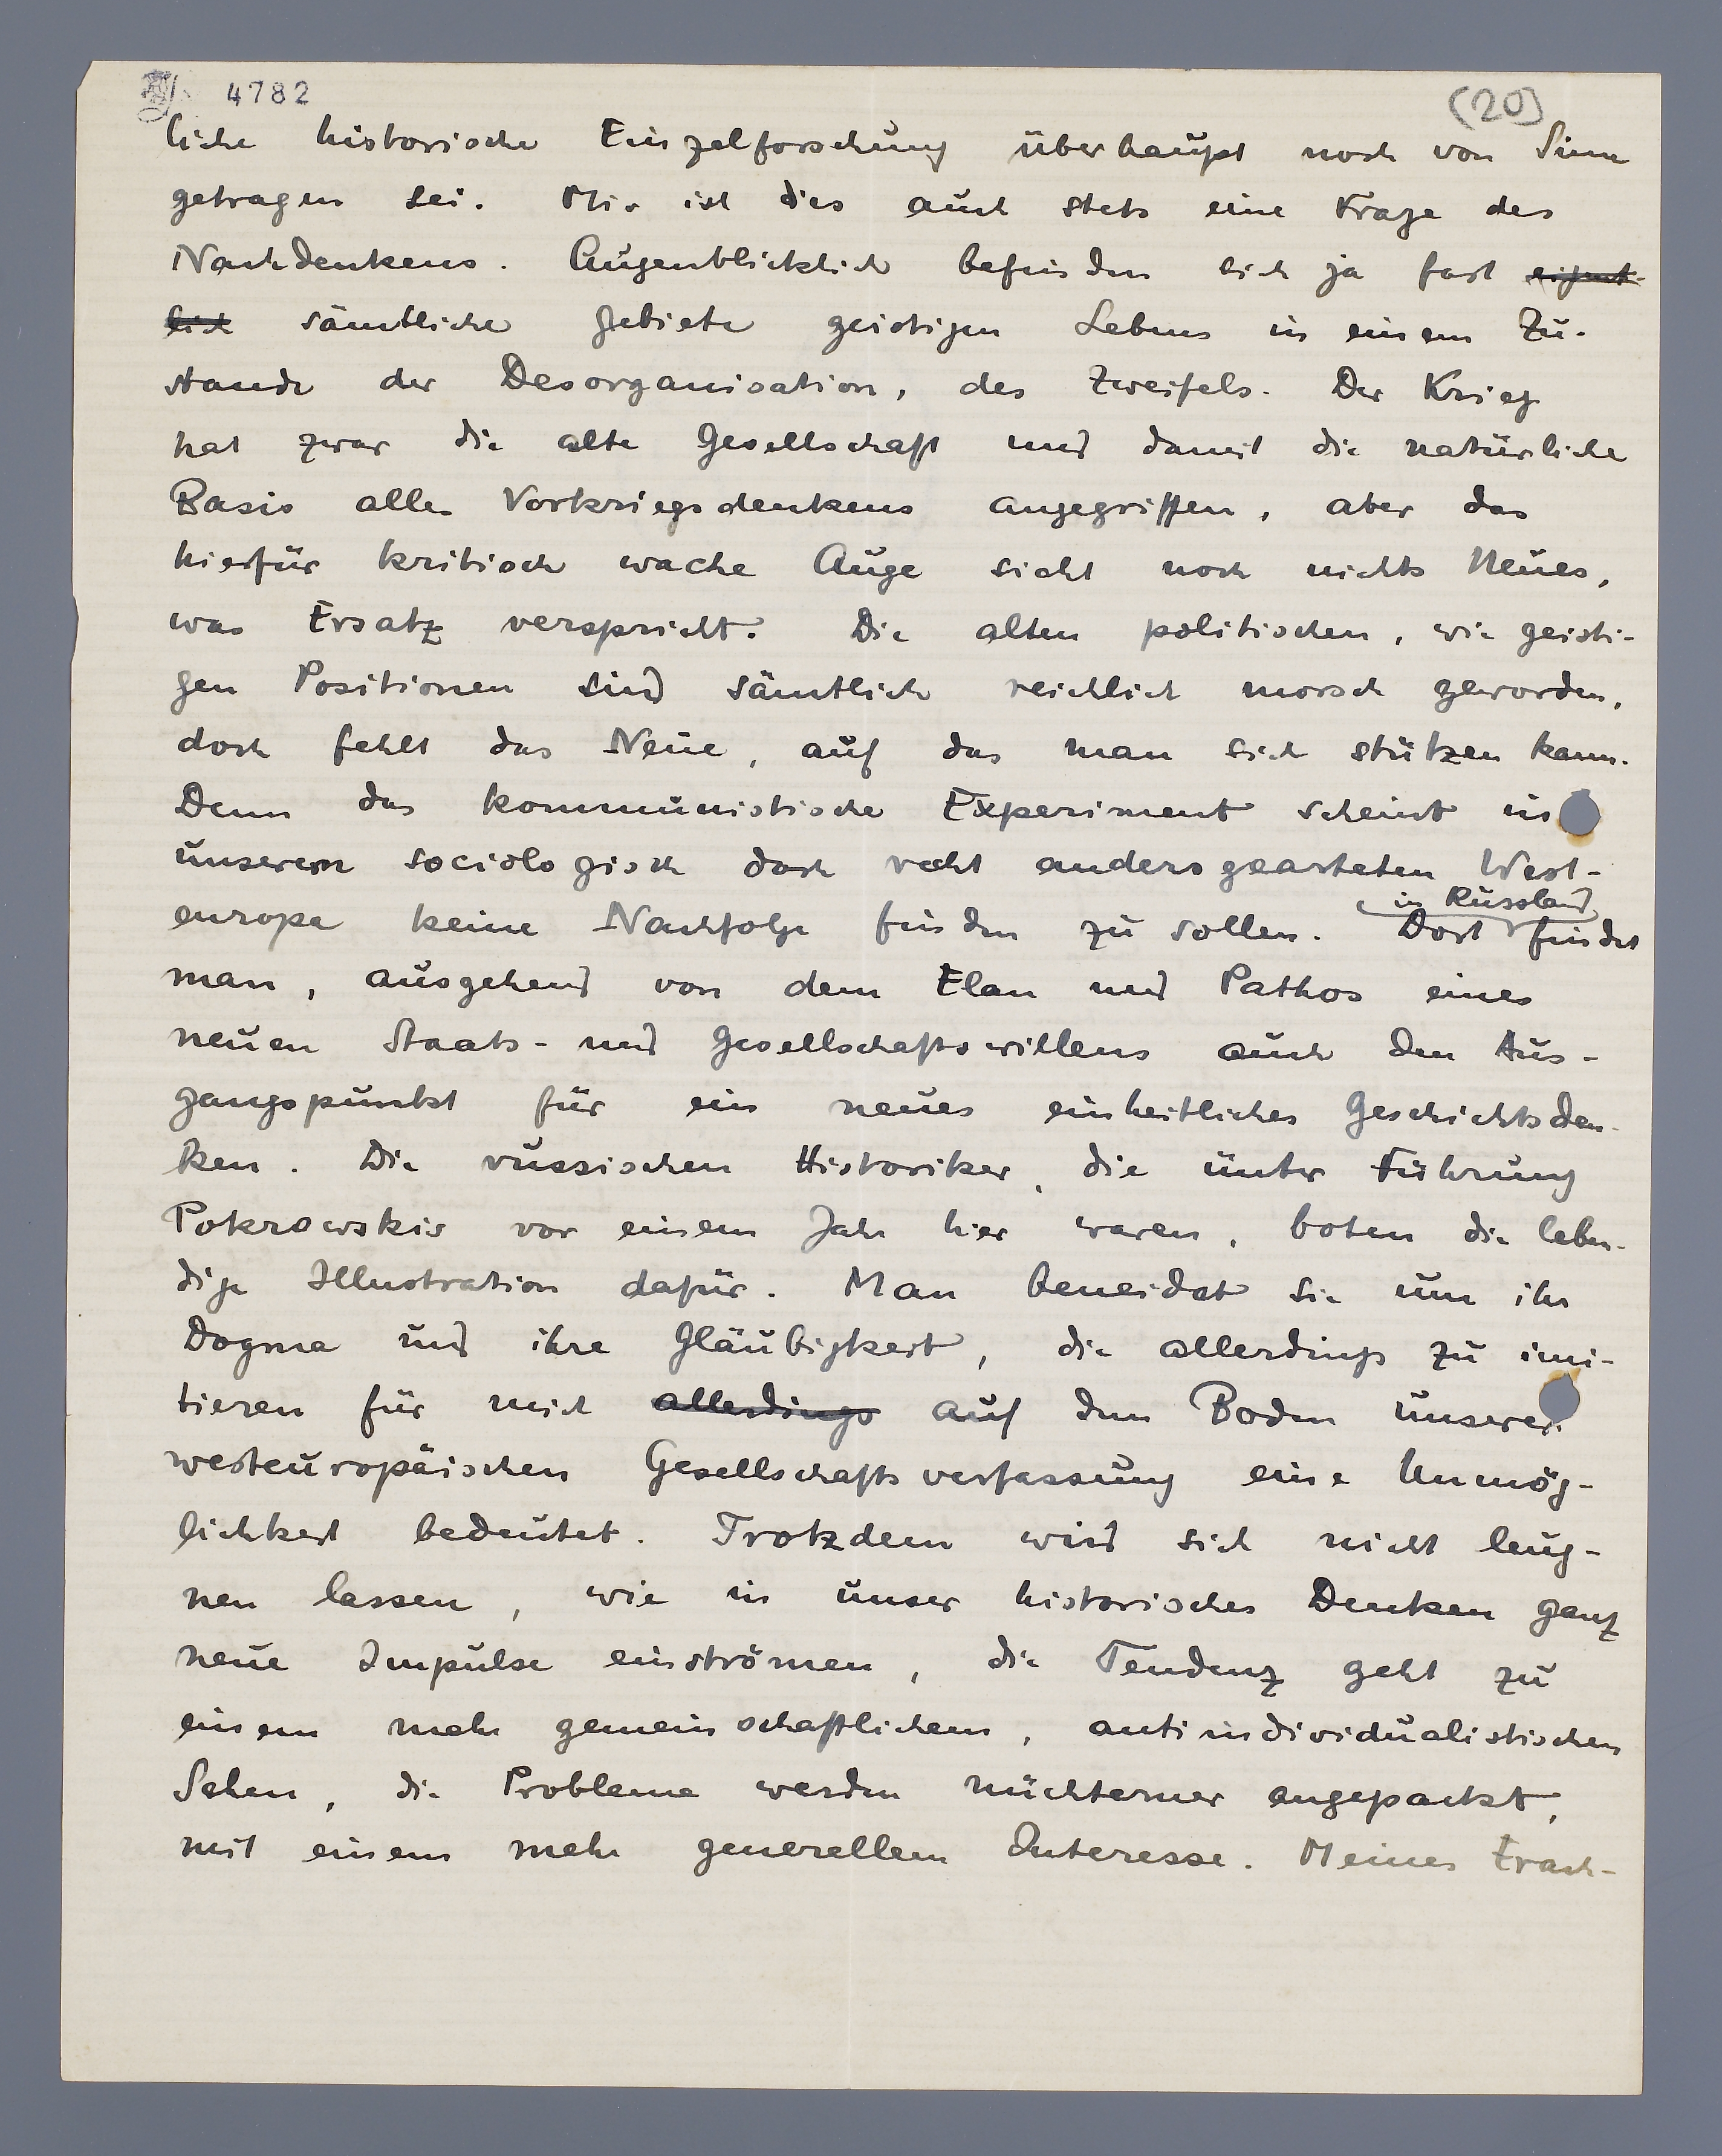 4782
(20)
liche historische Einzelforschung überhaupt noch von Sinn
getragen sei. Mir ist dies auch stets eine Frage des
Nachdenkens. Augenblicklich befinden sich ja fast eigent-
lich sämtliche Gebiete geistigen Lebens in einem Zu-
stande der Desorganisation, des Zweifels. Der Krieg
hat zwar die alte Gesellschaft und damit die natürliche
Basis alles Vorkriegsdenkens angegriffen, aber das
hierfür kritisch wache Auge sieht noch nichts Neues,
was Ersatz verspricht. Die alten politischen, wie geisti-
gen Positionen sind sämtlich reichlich morsch geworden,
doch fehlt das Neue, auf das man sich stützen kann.
Denn das kommunistische Experiment scheint in
unserem sociologisch doch recht andersgearteten West-
europa keine Nachfolge finden zu sollen. Dort in Russland findet
man, ausgehend von dem Elan und Pathos eines
neuen Staats- und Gesellschaftswillens auch den Aus-
gangspunkt für ein neues einheitliches Geschichtsden-
ken. Die russischen Historiker, die unter Führung
Pokrowskis vor einem Jahr hier waren, boten die leben-
dige Illustration dafür. Man beneidet sie um ihr
Dogma und ihre Gläubigkeit, die allerdings zu imi-
tieren für mich allerdings auf dem Boden unserer
westeuropäischen Gesellschaftsverfassung eine Unmög-
lichkeit bedeutet. Trotzdem wird sich nicht leug-
nen lassen, wie in unser historisches Denken ganz
neue Impulse einströmen, die Tendenz geht zu
einem mehr gemeinschaftlichem, antiindividualistischen
Sehen, die Probleme werden nüchterner angepackt,
mit einem mehr generellem Interesse. Meines Erach-